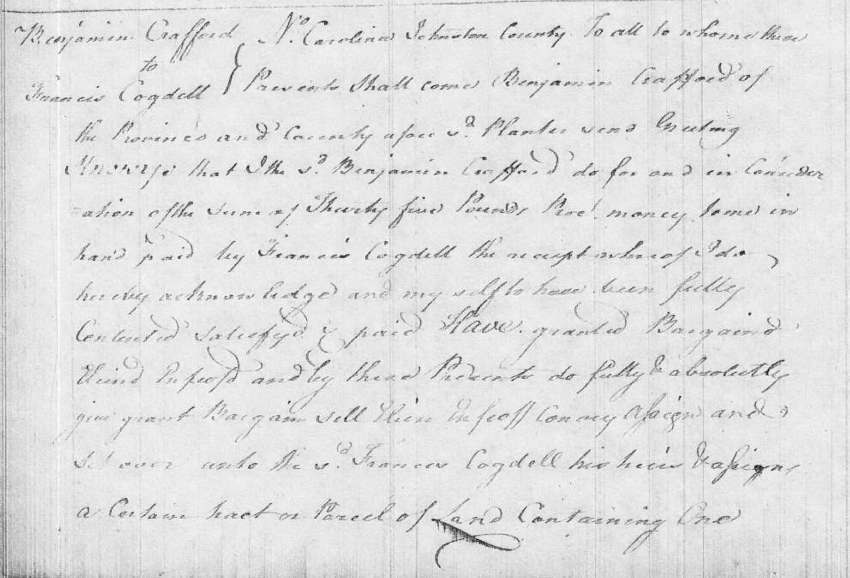 Benjamin Crafford } No. Carolina Johnston County To all to whome these
to
Francis Cogdell } Presents Shall come Benjamin Crafford of
the Province and County afore sd. Planter send Greeting
Know ye that I the sd. Benjamin Crafford do for and in Consider
=ation of the sum of Thirty five Pounds Proc. money to me in
hand paid by Francis Cogdell the receipt whereof I do
hereby acknowledge and my self to have been fully
Contented Satisfyd & paid Have granted Bargaind
Eliend Enfeofd and by these Presents do fully & absolutely
give grant Bargain sell Elien Enfeoff Convey assign and
set over unto the sd. Francis Cogdell his heirs & assigns
a Certain tract or Parcel of Land Containing One